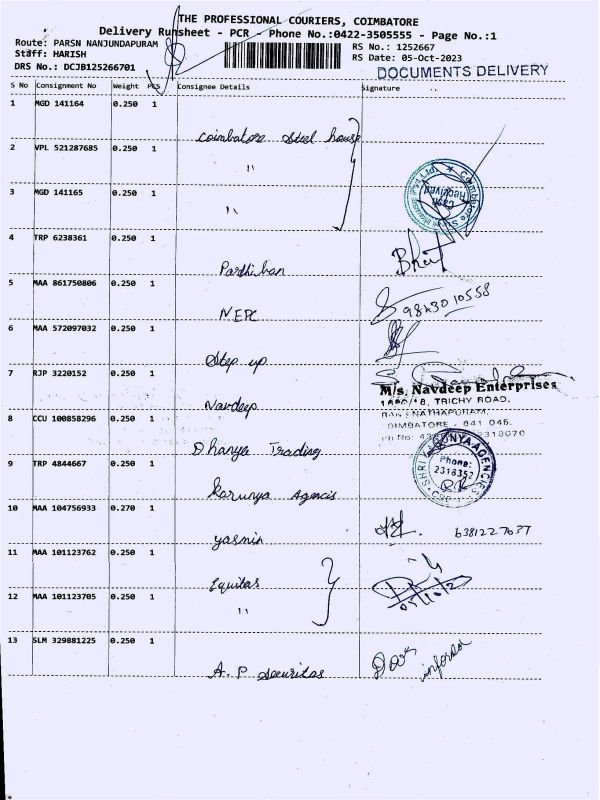 THE PROFESSIONAL COURIERS, COIMBATORE
Delivery Runsheet - PCR - Phone No.:0422-3505555 - Page No.:1
Route: PARSN NANJUNDAPURAM
RS No.: 1252667
Staff: HARISH
RS Date: 05-Oct-2023
DRS No.: DCJB125266701
DOCUMENTS DELIVERY
S No Consignment No Weight PCS Consignee Details Signature
1 MGD 141164 0.250 1
Coimbatore Steel house
2 VPL 521287685 0.250 1
"
3 MGD 141165 0.250 1
"
Coimbatore Steel House Pvt Ltd.
Cash Received
4 TRP 6238361 0.250 1
Parthiban
5 MAA 861750806 0.250 1
NEPC 9843010558
6 MAA 572097032 0.250 1
Step up
7 RJP 3220152 0.250 1
M/s. Navdeep Enterprises
TRICHY ROAD,
Navdeep
NATHAPURAM,
8 CCU 100858296 0.250 1
COIMBATORE - 641 045.
Ph No:
2318070
Dhanya Trading
9 TRP 4844667 0.250 1
SHRI KARUNYA AGENCIES
Phone:
2318352
CBE
Karunya Agencis
10 MAA 104756933 0.270 1
6381227637
yasmin
11 MAA 101123762 0.250 1
Equitas
12 MAA 101123705 0.250 1
"
05/10/2
13 SLM 329881225 0.250 1
Door
informed
A.P Securitas